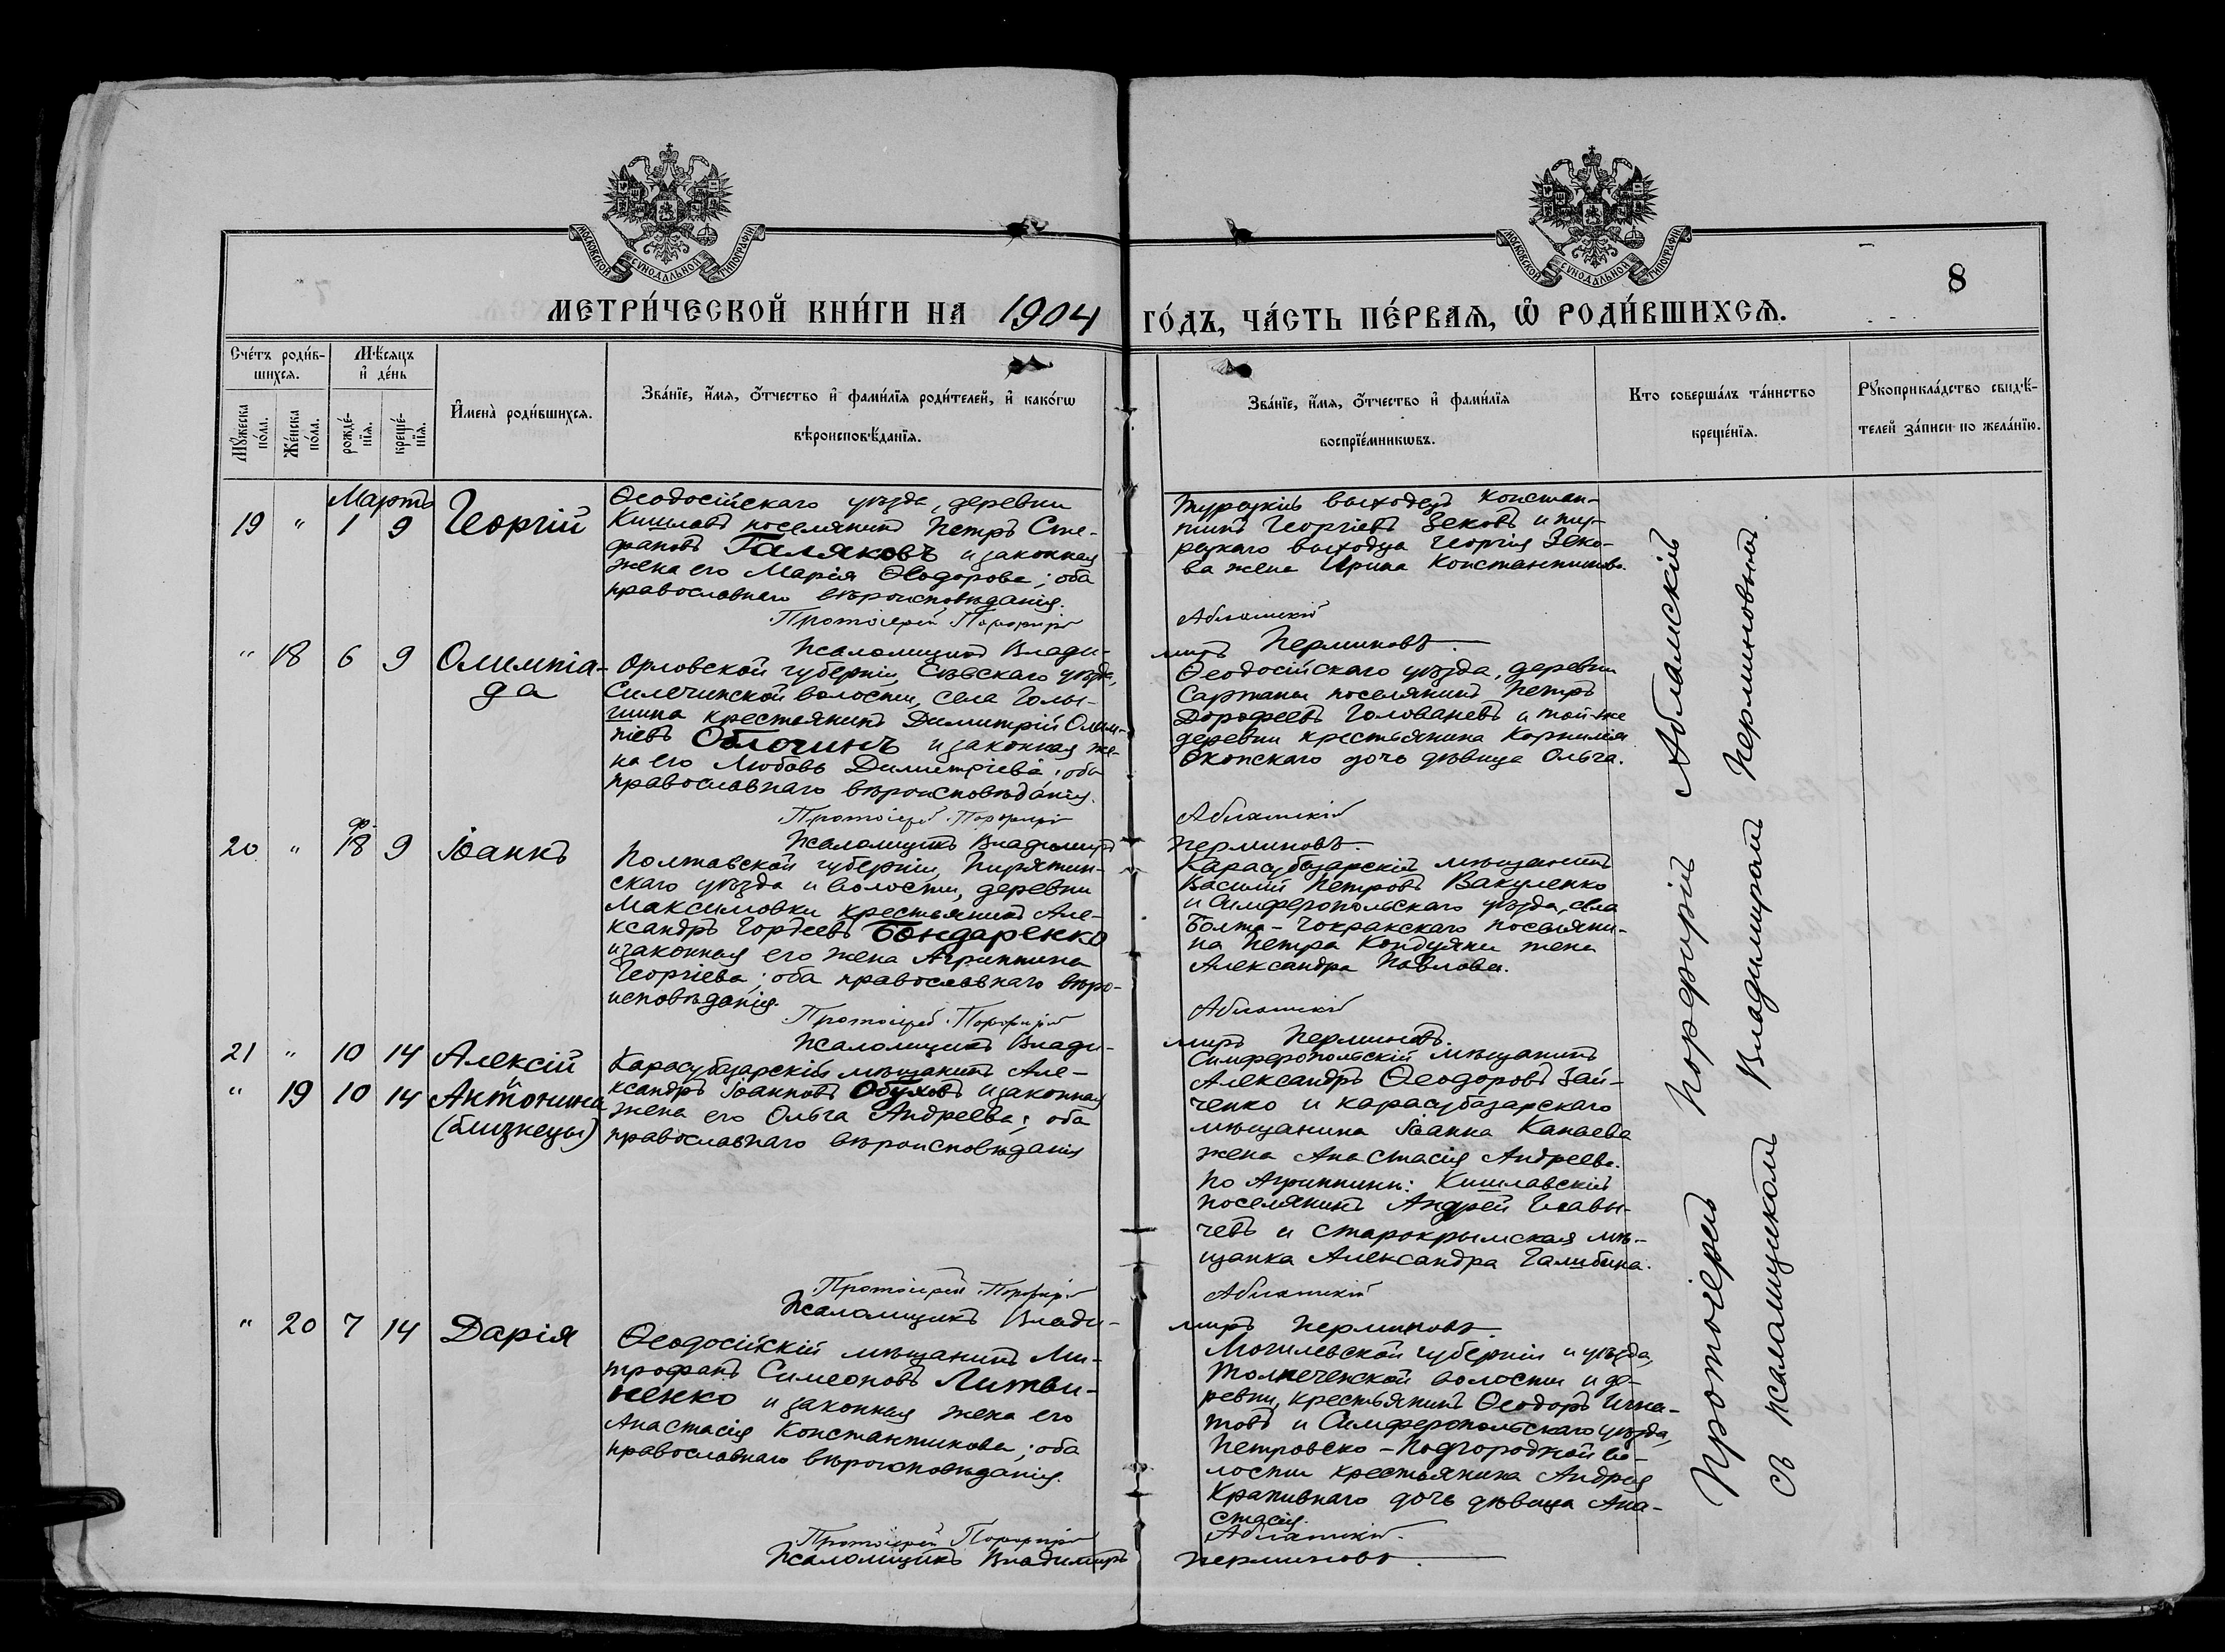 МОСКОВСКОЙ СѴНОДАЛЬНОЙ ТИПОГРАФІИ
МОСКОВСКОЙ СѴНОДАЛЬНОЙ ТИПОГРАФІИ
8
МЕТРИ́ЧЕСКОЙ КНИ́ГИ НА 1904 ГО́ДЪ, ЧА́СТЬ ПЕ́РВАѦ, Ѡ҆ РОДИ́ВШИХСѦ.
Сче́тъ роди́в-
шихсѧ.
Мꙋ́жеска по́ла.
Же́нска по́ла.
Мѣ́сѧцъ
и҆ де́нь
рожде́-
нїѧ.
креще́-
нїѧ.
И҆мена̀ роди́вшихсѧ.
Зва́нїе, и҆́мѧ, о҆́тчество и҆ фами́лїѧ роди́телей, и҆ како́гѡ
вѣроисповѣ́данїѧ.
Зва́нїе, и҆́мѧ, о҆́тчество и҆ фами́лїѧ
воспрїе́мникѡвъ.
Кто соверша́лъ та́инство
креще́нїѧ.
Рꙋкоприкла́дство свидѣ́-
телей за́писи по жела́нїю.
Мартъ
19 " 1 9 Георгій
Ѳеодосійскаго уѣзда, деревни
Кишлавъ поселянинъ Петръ Сте-
фановъ Галяковъ и законная
жена его Марія Ѳеодорова; оба
православнаго вѣроисповѣданія.
Протоіерей Порфирій
Псаломщикъ Влади-
Турецкій выходецъ Констан-
тинъ Георгіевъ Зековъ и ту-
рецкаго выходца Георгія Зеко-
ва жена Ирина Константинова.
Абламскій
миръ Перминовъ
" 18 6 9 Олимпіа-
да
Орловской губерніи, Сѣвскаго уѣзда,
Силечинской волости, села Голы-
шина крестьянинъ Димитрій Олим-
піевъ Облогинъ и законная же-
на его Любовь Димитріева; оба
православнаго вѣроисповѣданія.
Протоіерей Порфирій
Псаломщикъ Владимиръ
Ѳеодосійскаго уѣзда, деревни
Сартаны поселянинъ Петръ
Дорофеевъ Голованевъ и той-же
деревни крестьянина Корнилія
Оконскаго дочь дѣвица Ольга.
Абламскій
Перминовъ
20 " ф. 18 9 Іоаннъ
Полтавской губерніи, Пирятин-
скаго уѣзда и волости, деревни
Максимовки крестьянинъ Але-
ксандръ Гордеевъ Бондаренко
и законная его жена Агриппина
Георгіева; оба православнаго вѣро-
исповѣданія.
Протоіерей Порфирій
Псаломщикъ Влади-
Карасубазарскій мѣщанинъ
Василій Петровъ Вакуленко
и Симферопольскаго уѣзда, села
Болта-Чокракскаго поселяни-
на Петра Кондуяни жена
Александра Павлова.
Абламскій
миръ Перминовъ.
21 " 10 14 Алексій
" 19 10 14 Антонина
(близнецы)
Карасубазарскій мѣщанинъ Але-
ксандръ Іоанновъ Обуховъ и законная
жена его Ольга Андреева; оба
православнаго вѣроисповѣданія
Протоіерей Порфирій
Псаломщикъ Влади-
Симферопольскій мѣщанинъ
Александръ Ѳеодоровъ Зай-
ченко и карасубазарскаго
мѣщанина Іоанна Канаева
жена Анастасія Андреева.
По Агриппинѣ: Кишлавскій
поселянинъ Андрей Главы-
чевъ и старокрымская мѣ-
щанка Александра Галибина.
Абламскій
миръ Перминовъ.
" 20 7 14 Дарія
Ѳеодосійскій мѣщанинъ Ми-
трофанъ Симеоновъ Литви-
ненко и законная жена его
Анастасія Константинова; оба
православнаго вѣроисповѣданія.
Протоіерей Порфирій
Псаломщикъ Владимиръ
Могилевской губерніи и уѣзда,
Толпеченской волости и де-
ревни, крестьянинъ Ѳеодоръ Игна-
товъ и Симферопольскаго уѣзда,
Петровско-Подгородной во-
лости крестьянина Андрея
Крапивнаго дочь дѣвица Ана-
стасія.
Абламскій.
Перминовъ.
Протоіерей Порфирій Абламскій
съ псаломщикомъ Владимиромъ Перминовымъ.